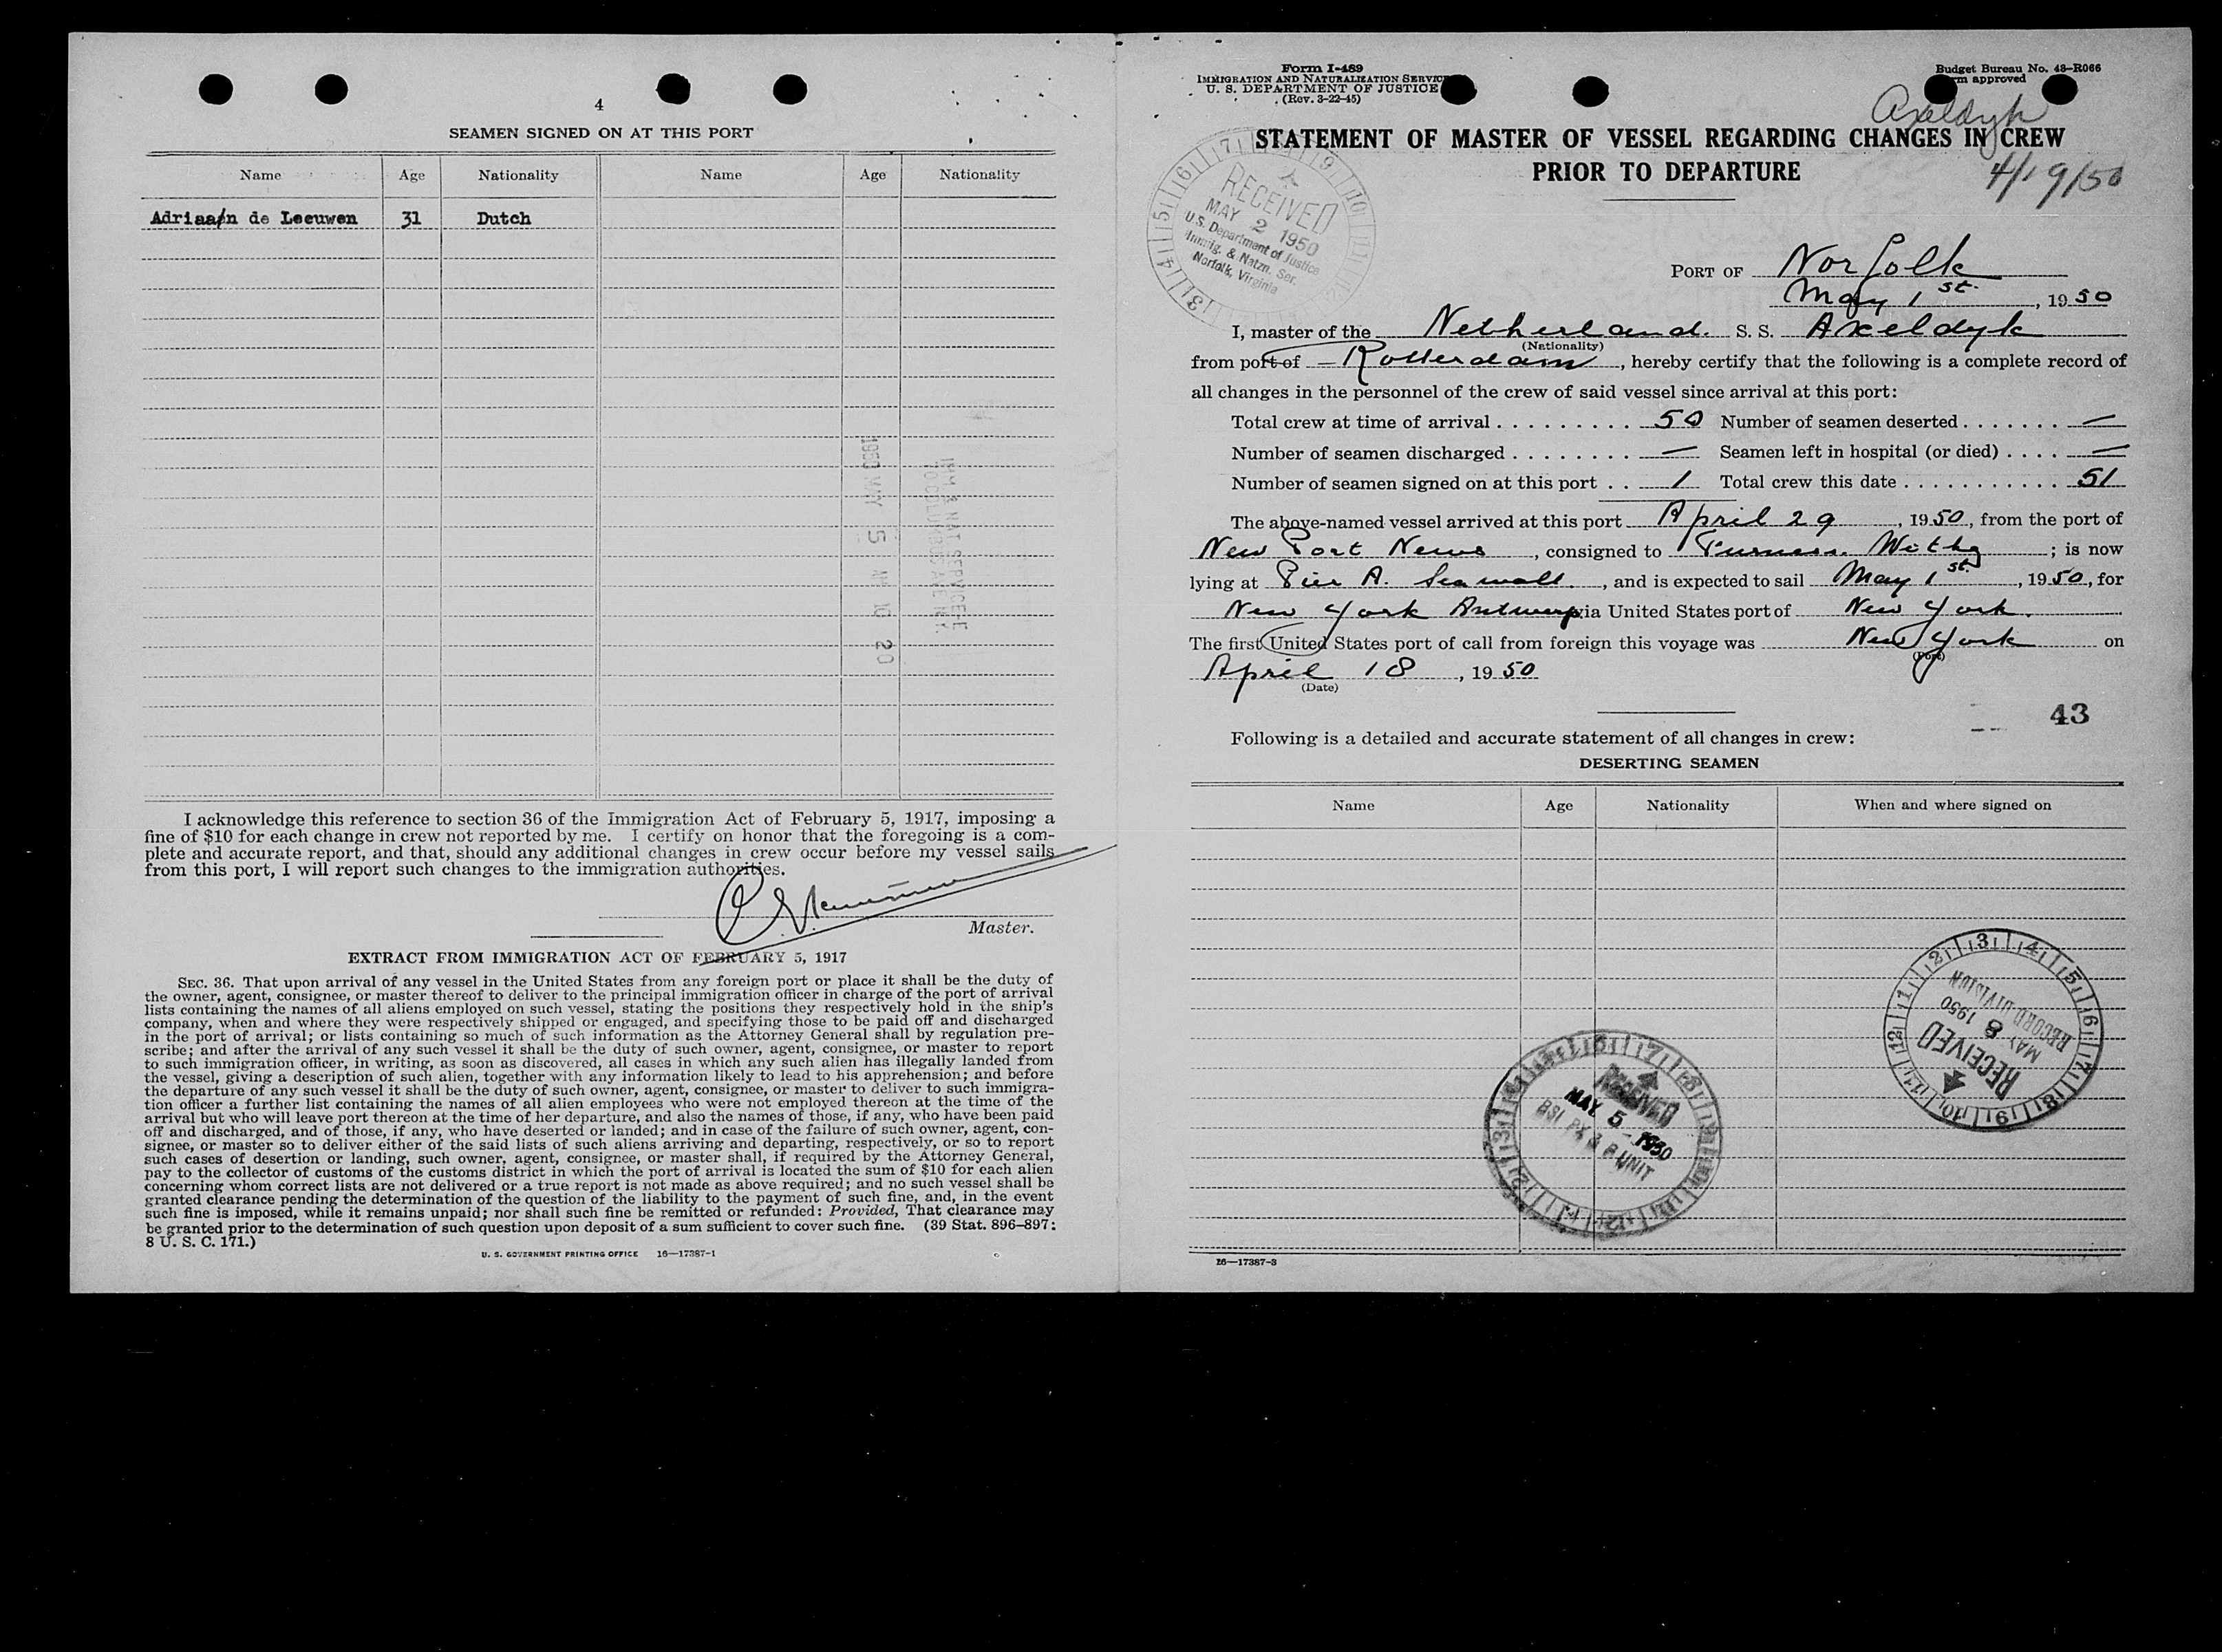 4
SEAMEN SIGNED ON AT THIS PORT
Name Age Nationality Name Age Nationality
Adriaa/n de Leeuwen 31 Dutch
1950 MAY 5 AM 10 20
IMM & NAT SERVICE
70 COLUMBUS AVE N.Y.
I acknowledge this reference to section 36 of the Immigration Act of February 5, 1917, imposing a
fine of $10 for each change in crew not reported by me. I certify on honor that the foregoing is a com-
plete and accurate report, and that, should any additional changes in crew occur before my vessel sails
from this port, I will report such changes to the immigration authorities.
Master.
EXTRACT FROM IMMIGRATION ACT OF FEBRUARY 5, 1917
SEC. 36. That upon arrival of any vessel in the United States from any foreign port or place it shall be the duty of
the owner, agent, consignee, or master thereof to deliver to the principal immigration officer in charge of the port of arrival
lists containing the names of all aliens employed on such vessel, stating the positions they respectively hold in the ship's
company, when and where they were respectively shipped or engaged, and specifying those to be paid off and discharged
in the port of arrival; or lists containing so much of such information as the Attorney General shall by regulation pre-
scribe; and after the arrival of any such vessel it shall be the duty of such owner, agent, consignee, or master to report
to such immigration officer, in writing, as soon as discovered, all cases in which any such alien has illegally landed from
the vessel, giving a description of such alien, together with any information likely to lead to his apprehension; and before
the departure of any such vessel it shall be the duty of such owner, agent, consignee, or master to deliver to such immigra-
tion officer a further list containing the names of all alien employees who were not employed thereon at the time of the
arrival but who will leave port thereon at the time of her departure, and also the names of those, if any, who have been paid
off and discharged, and of those, if any, who have deserted or landed; and in case of the failure of such owner, agent, con-
signee, or master so to deliver either of the said lists of such aliens arriving and departing, respectively, or so to report
such cases of desertion or landing, such owner, agent, consignee, or master shall, if required by the Attorney General,
pay to the collector of customs of the customs district in which the port of arrival is located the sum of $10 for each alien
concerning whom correct lists are not delivered or a true report is not made as above required; and no such vessel shall be
granted clearance pending the determination of the question of the liability to the payment of such fine, and, in the event
such fine is imposed, while it remains unpaid; nor shall such fine be remitted or refunded: Provided, That clearance may
be granted prior to the determination of such question upon deposit of a sum sufficient to cover such fine. (39 Stat. 896–897;
8 U. S. C. 171.)
U. S. GOVERNMENT PRINTING OFFICE 16—17387-1
Form I-489
IMMIGRATION AND NATURALIZATION SERVICE
U. S. DEPARTMENT OF JUSTICE
(Rev. 3-22-45)
Budget Bureau No. 43–R066
approved
Axeldyk
STATEMENT OF MASTER OF VESSEL REGARDING CHANGES IN CREW
PRIOR TO DEPARTURE
4/19/50
RECEIVED
MAY 2 1950
U.S. Department of Justice
Immig. & Natzn. Ser.
Norfolk, Virginia
PORT OF Norfolk
May 1st., 1950
I, master of the Netherland. S. S. Axeldyk
(Nationality)
from port of – Rotterdam, hereby certify that the following is a complete record of
all changes in the personnel of the crew of said vessel since arrival at this port:
Total crew at time of arrival . . . . . . . . . 50 Number of seamen deserted . . . . . . . —
Number of seamen discharged . . . . . . . . — Seamen left in hospital (or died) . . . . —
Number of seamen signed on at this port . . 1 Total crew this date . . . . . . . . . . . 51
The above-named vessel arrived at this port April 29, 1950, from the port of
New Port News, consigned to Furness. Withy; is now
lying at Pier A. Seawall, and is expected to sail May 1st., 1950, for
New York Antwerp via United States port of New York.
The first United States port of call from foreign this voyage was New York on
(Port)
April 18, 1950
(Date)
43
Following is a detailed and accurate statement of all changes in crew:
DESERTING SEAMEN
Name Age Nationality When and where signed on
RECEIVED
MAY 8 1950
RECORD DIVISION
RECEIVED
MAY 5 - 1950
BSI UNIT
16—17387-3